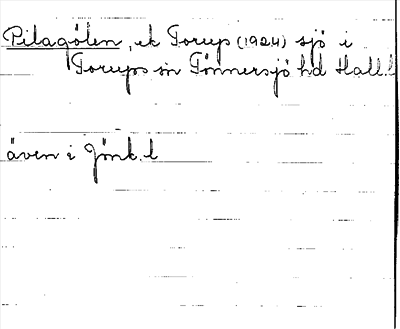 Pilagölen, ek Torup (1924) sjö i
Torups sn Tönnersjö hd Hall.l
även i Jönk.l